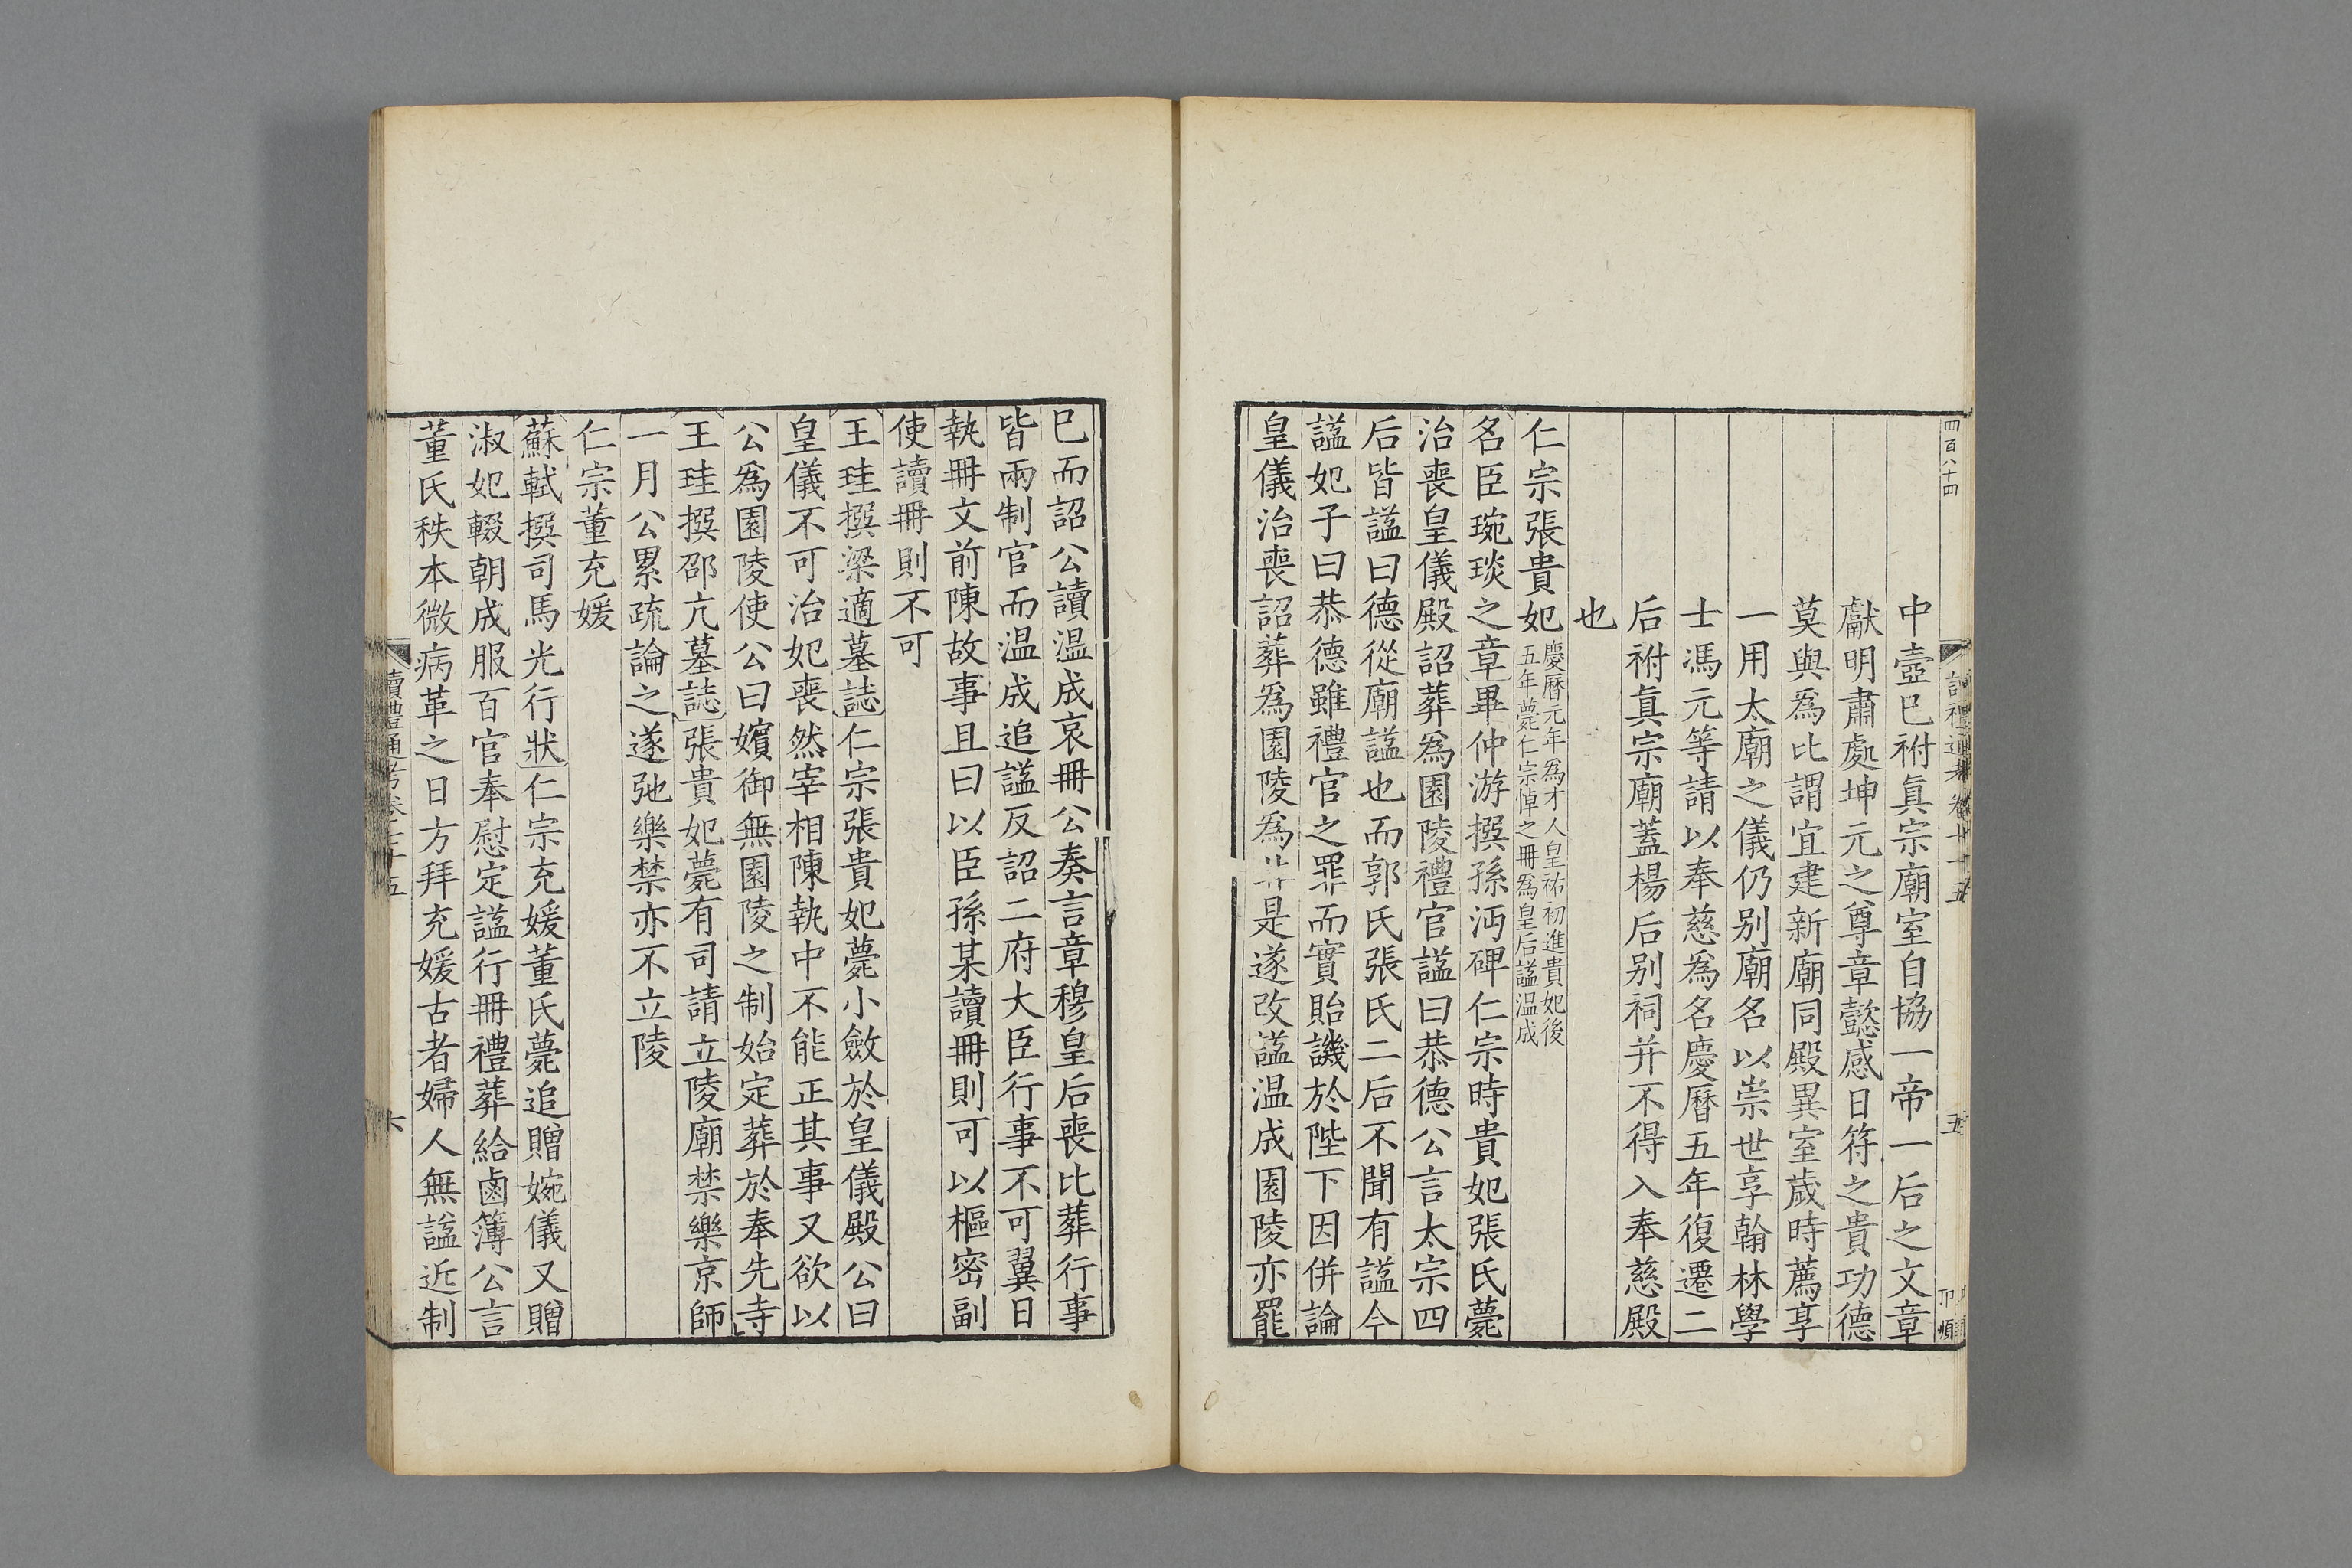 四百八十四
讀禮通考卷七十五
五
中壼巳祔眞宗廟室自協一帝一后之文章
獻明肅處坤元之尊章懿感日符之貴功德
莫與爲比謂宜建新廟同殿異室歲時薦享
一用太廟之儀仍别廟名以崇世享翰林學
士馮元等請以奉慈爲名慶曆五年復遷二
后祔眞宗廟蓋楊后别祠并不得入奉慈殿
也
仁宗張貴妃慶曆元年爲才人皇祐初進貴妃後
五年薨仁宗悼之冊爲皇后諡温成
名臣琬琰之章畢仲游撰孫沔碑仁宗時貴妃張氏薨
治喪皇儀殿詔葬爲園陵禮官諡曰恭德公言太宗四
后皆諡曰德從廟諡也而郭氏張氏二后不聞有諡今
諡妃子曰恭德雖禮官之罪而實貽譏於陛下因併論
皇儀治喪詔葬爲園陵爲非是遂改諡温成園陵亦罷
巳而詔公讀温成哀冊公奏言章穆皇后喪比葬行事
皆兩制官而温成追諡反詔二府大臣行事不可翼日
執冊文前陳故事且曰以臣孫某讀冊則可以樞密副
使讀冊則不可
王珪撰梁適墓誌仁宗張貴妃薨小斂於皇儀殿公曰
皇儀不可治妃喪然宰相陳執中不能正其事又欲以
公爲園陵使公曰嬪御無園陵之制始定葬於奉先寺
王珪撰邵亢墓誌張貴妃薨有司請立陵廟禁樂京師
一月公累疏論之遂弛樂禁亦不立陵
仁宗董充媛
蘇軾撰司馬光行狀仁宗充媛董氏薨追贈婉儀又贈
淑妃輟朝成服百官奉慰定諡行冊禮葬給鹵簿公言
董氏秩本微病革之日方拜充媛古者婦人無諡近制
讀禮通考卷七十五
六